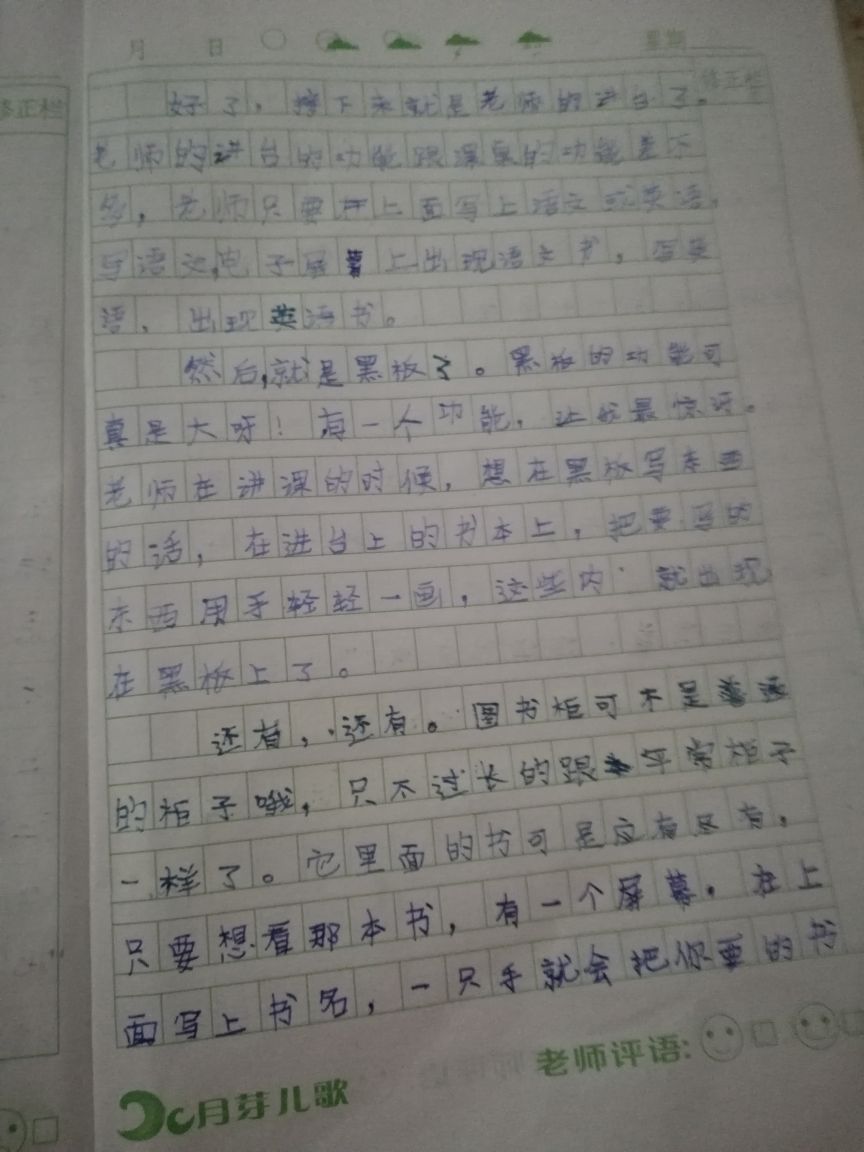 月 日 星期
修正栏
修正栏
好了，接下来就是老师的讲台了。
老师的讲台的功能跟课桌的功能差不
多，老师只要在上面写上语文或英语，
写语文，电子屏幕上出现语文书，写英
语，出现英语书。
然后，就是黑板了。黑板的功能可
真是大呀！有一个功能，让我最惊讶。
老师在讲课的时候，想在黑板写东西
的话，在进台上的书本上，把要写的
东西用手轻轻一画，这些内 就出现
在黑板上了。
还有，还有。图书柜可不是普通
的柜子哦，只不过长的跟平常柜子
一样了。它里面的书可是应有尽有，
只要想看那本书，有一个屏幕。在上
面写上书名，一只手就会把你要的书
老师评语：
月芽儿歌